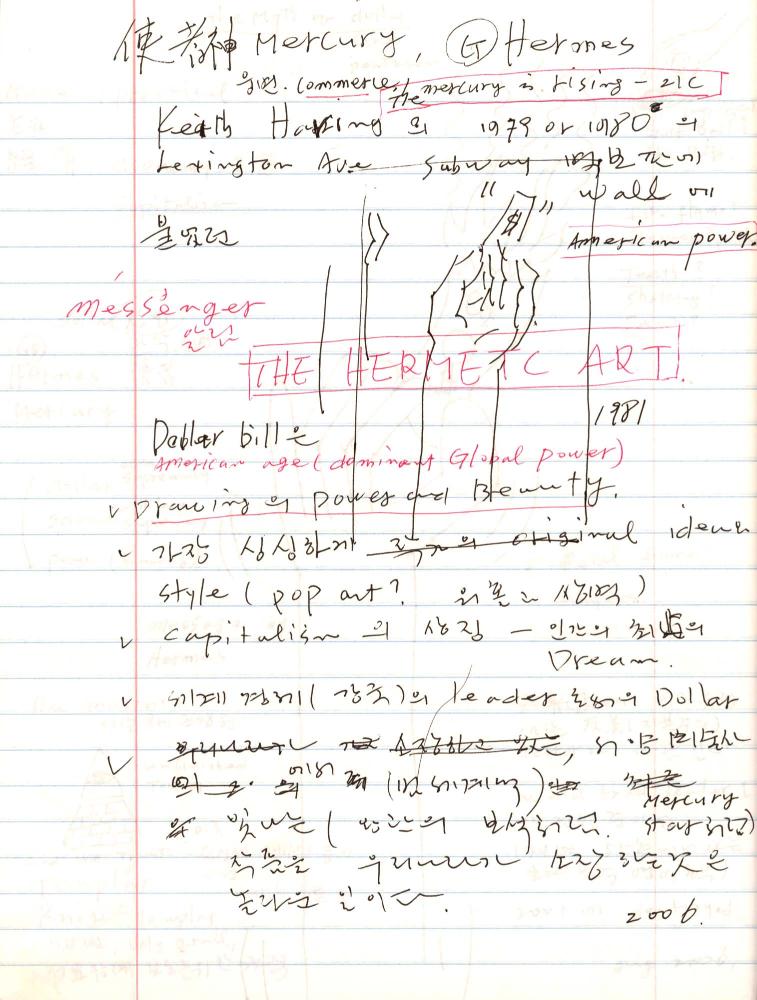 使者神 Mercury, G Hermes
우편. Commerce, the mercury is rising - 21C
Keith Haring 의 1979 or 1980 의
Lexington Ave Subway 벽보판에
" $ " wall 에
붙였던
American power.
méssenger
알림
THE HERMETIC ART.
1981
Dollar bill은
American age (dominant Global power)
✓ Drawing 의 power and Beauty.
✓ 가장 싱싱하게 original idea
style (pop art?
✓ Capitalism 의 상징 - 인간의 최고의
Dream.
✓ 세계 경제(강국)의 leader 로서의 Dollar
✓ 서양 미술사
에서 (범세계적)
Mercury
빛나는 ( 보석처럼. star처럼)
작품을 우리나라가 소장하는 것은
놀라운 일이다.
2006.